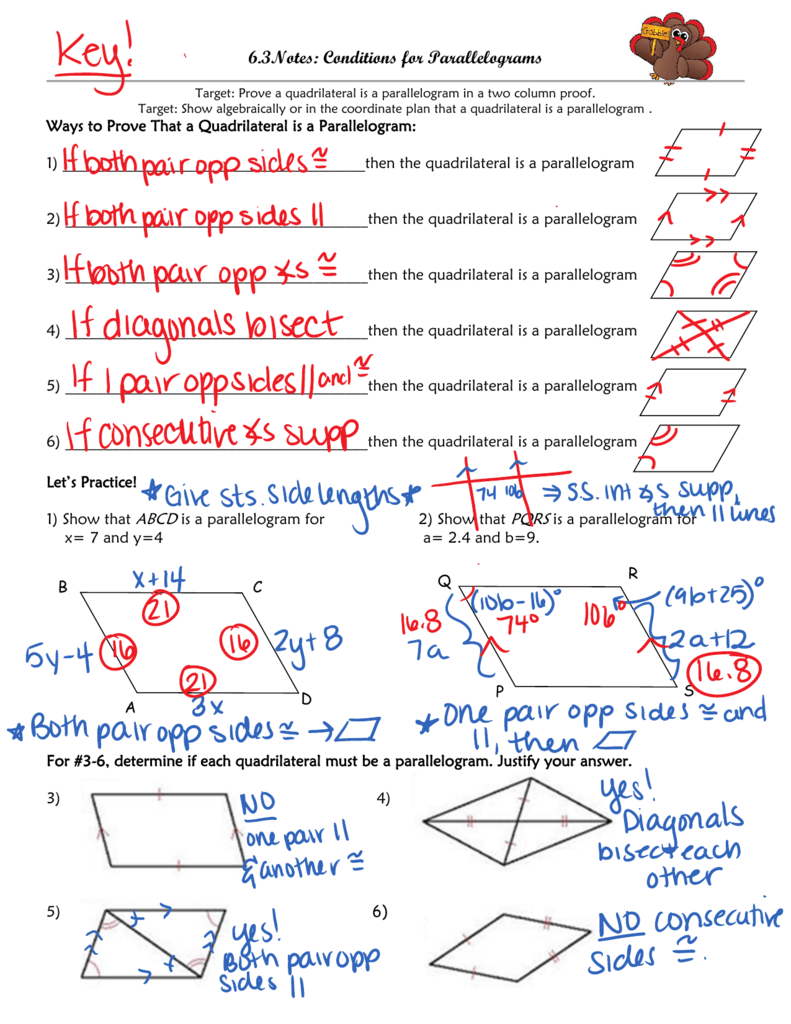 Key!
Gobble!
6.3Notes: Conditions for Parallelograms
Target: Prove a quadrilateral is a parallelogram in a two column proof.
Target: Show algebraically or in the coordinate plan that a quadrilateral is a parallelogram .
Ways to Prove That a Quadrilateral is a Parallelogram:
1) If both pair opp sides ≅ then the quadrilateral is a parallelogram
2) If both pair opp sides || then the quadrilateral is a parallelogram
3) If both pair opp ∡s ≅ then the quadrilateral is a parallelogram
4) If diagonals bisect then the quadrilateral is a parallelogram
5) If 1 pair opp sides || and ≅ then the quadrilateral is a parallelogram
6) If consecutive ∡s supp then the quadrilateral is a parallelogram
Let's Practice! ★ Give sts. side lengths ★
74 106 ⇒ SS. int ∡s supp, then || lines
1) Show that ABCD is a parallelogram for
x= 7 and y=4
2) Show that PQRS is a parallelogram for
a= 2.4 and b=9.
B x+14 C
21
5y-4 16 16 2y+8
21
A 3x D
Q R
(10b-16)° (9b+25)°
16.8 74° 106°
7a 2a+12
P S 16.8
★ Both pair opp sides ≅ → ▱
★ One pair opp sides ≅ and
||, then ▱
For #3-6, determine if each quadrilateral must be a parallelogram. Justify your answer.
3) NO
one pair ||
& another ≅
4) yes!
Diagonals
bisect each
other
5) yes!
Both pair opp
sides ||
6) NO consecutive
sides ≅.